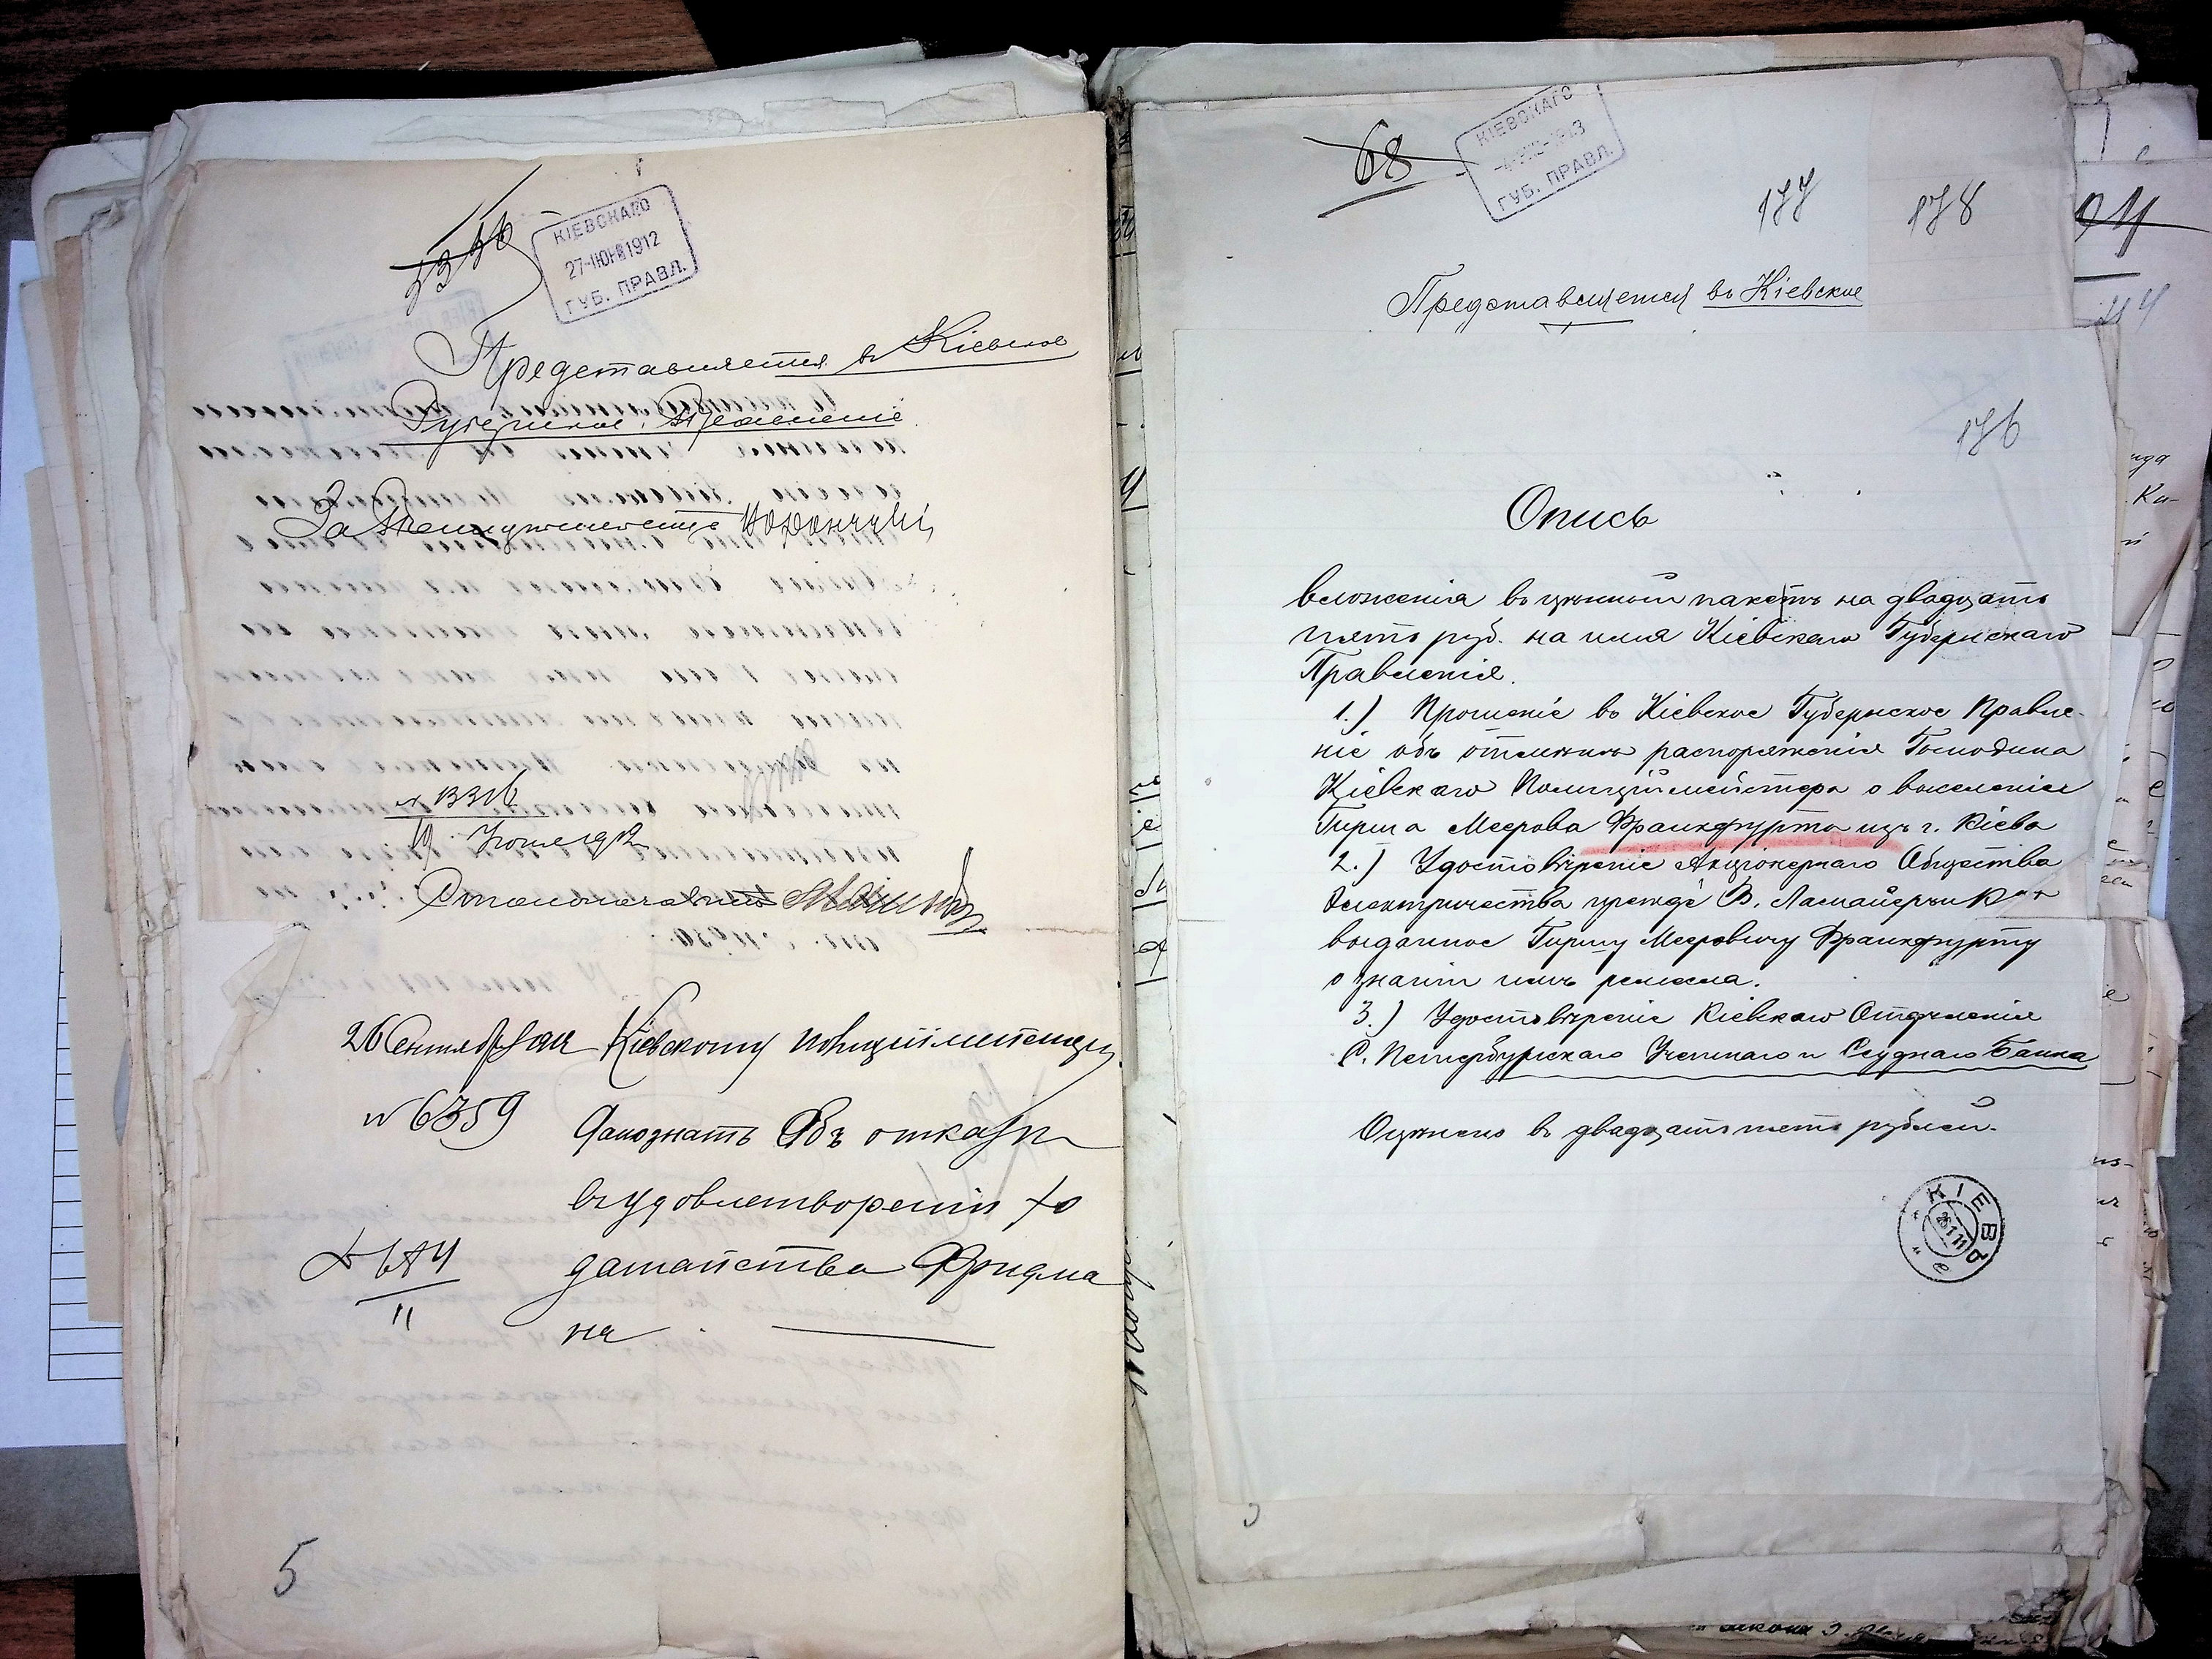 КІЕВСКАГО
27 ІЮН 1912
ГУБ. ПРАВЛ.
Представляется въ Кіевское
Губернское Правленіе
За
№ 1331б
19 Іюня 1912
Столоначальникъ
26 Сентября 1912 Кіевскому Полиціймейстеру
№ 6359
Дать знать объ отказѣ
въ удовлетвореніи хо
датайства Фридма
на.
II
5
68
КІЕВСКАГО
1913
ГУБ. ПРАВЛ.
177
178
Представляется въ Кіевское
176
Опись
вложенія въ цѣнный пакетъ на двадцать
пять руб. на имя Кіевскаго Губернскаго
Правленія.
1.) Прошеніе въ Кіевское Губернское Правле-
ніе объ отмѣнѣ распоряженія Господина
Кіевскаго Полиціймейстера о выселеніи
Гирша Меерова Франкфурта изъ г. Кіева
2.) Удостовѣреніе Акціонернаго Общества
Электричества прежде В. Ламайеръ и К°
выданное Гиршу Мееровичу Франкфурту
о знаніи имъ ремесла.
3.) Удостовѣреніе Кіевскаго Отдѣленія
С. Петербургскаго Учетнаго и Ссуднаго Банка
Оцѣнено въ двадцать пять рублей.
КІЕВЪ